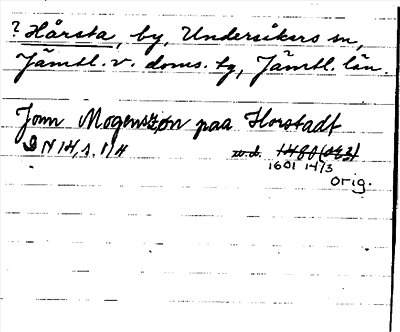 ? Hårsta, by, Undersåkers sn,
Jämtl. v. doms. tg, Jämtl. län.
Jonn Mogenszøn paa Horstadt
DN 14, s. 114
w.d. 1480
1601 14/3
orig.